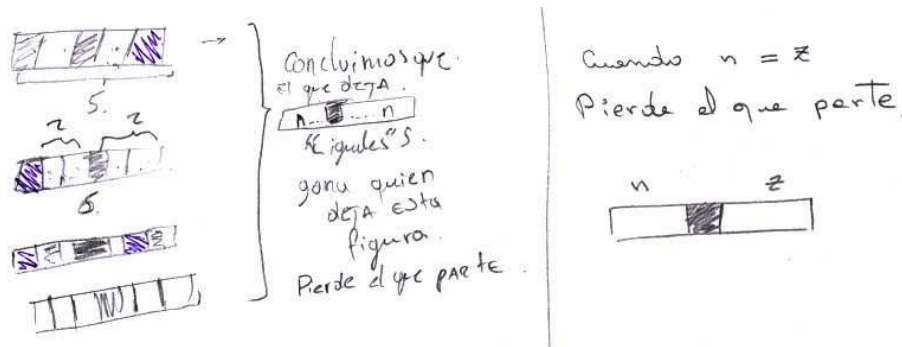 5.
2 2
6.
Concluimos que.
el que deja.
n... ....n
"iguales" s.
gana quien
deja esta
figura.
Pierde el que parte.
Cuando n = z
Pierde el que parte.
n z